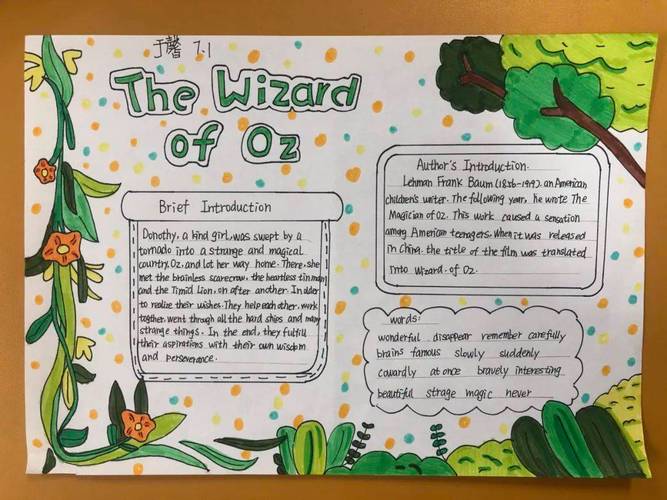 于馨 7.1
The Wizard
of Oz
Brief Introduction
Dorothy, a kind girl, was swept by a
tornado into a strange and magical
country, Oz, and lot her way home. There, she
met the brainless scarecrow, the heartless tin man
and the Timid Lion, on after another. In older
to realize their wishes. They help each other, work
together, went through all the hard ships and many
strange things. In the end, they fulfill
their aspirations with their own wisdom
and perseverance.
Author's Introduction.
Lehman Frank Baum (1856-1919). an American
children's writer. The following year, he wrote The
Magician of Oz. This work caused a sensation
among American teenagers. When it was released
in China. the title of the film was translated
into Wizard. of Oz.
words:
wonderful disappear remember carefully
brains famous slowly suddenly
cowardly at once bravely interesting
beautiful strage magic never